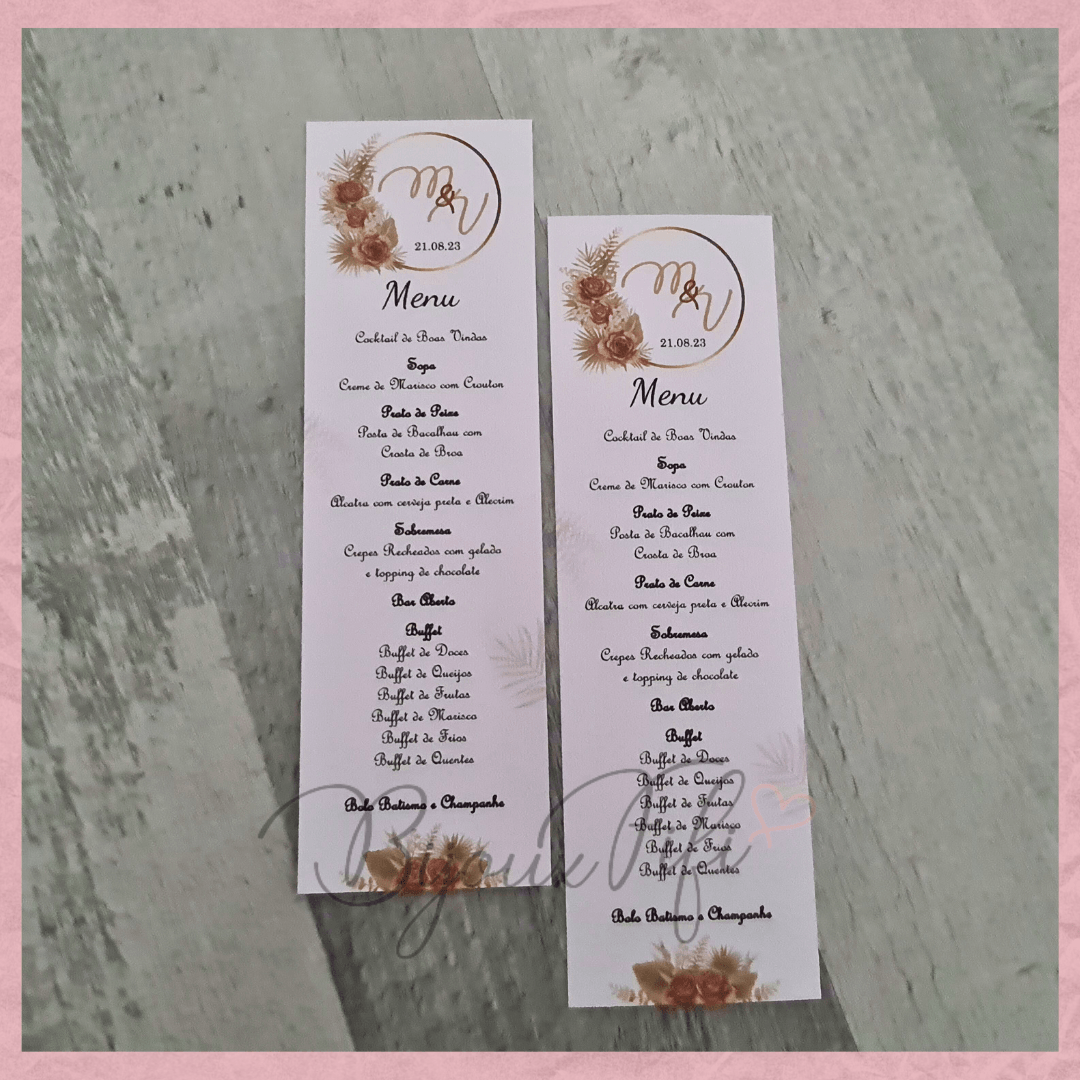 &
21.08.23
Menu
Cocktail de Boas Vindas
Sopa
Creme de Marisco com Crouton
Prato de Peixe
Posta de Bacalhau com
Crosta de Broa
Prato de Carne
Alcatra com cerveja preta e Alecrim
Sobremesa
Crepes Recheados com gelado
e topping de chocolate
Bar Aberto
Buffet
Buffet de Doces
Buffet de Queijos
Buffet de Frutas
Buffet de Marisco
Buffet de Frios
Buffet de Quentes
Bolo Batismo e Champanhe
&
21.08.23
Menu
Cocktail de Boas Vindas
Sopa
Creme de Marisco com Crouton
Prato de Peixe
Posta de Bacalhau com
Crosta de Broa
Prato de Carne
Alcatra com cerveja preta e Alecrim
Sobremesa
Crepes Recheados com gelado
e topping de chocolate
Bar Aberto
Buffet
Buffet de Doces
Buffet de Queijos
Buffet de Frutas
Buffet de Marisco
Buffet de Frios
Buffet de Quentes
Bolo Batismo e Champanhe
Bijoux Fifi